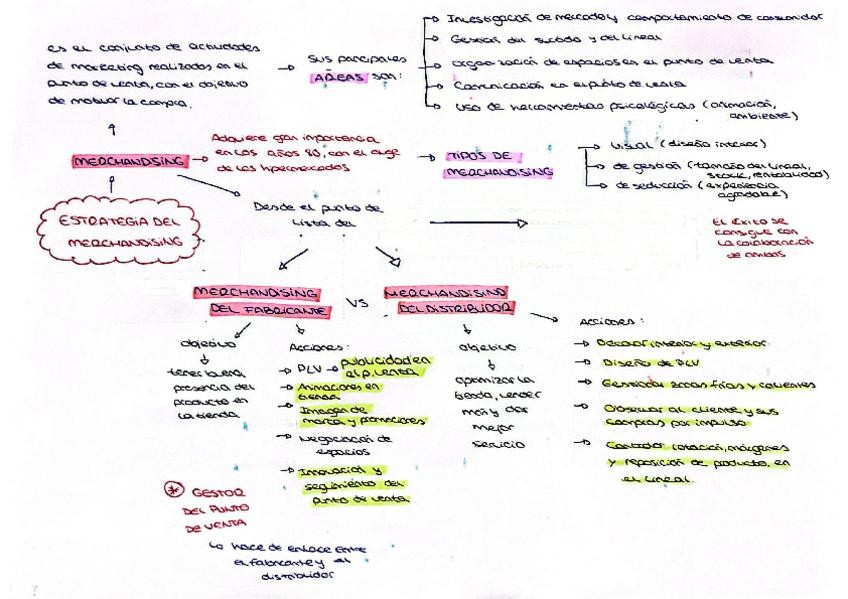 es el conjunto de actividades
de marketing realizados en el
punto de venta, con el objetivo
de motivar la compra.
sus principales
AREAS son:
Investigación de mercado y comportamiento de consumidor
Gestión del surtido y del lineal
organización de espacios en el punto de venta
Comunicación en el punto de venta
Uso de herramientas psicológicas (animación,
ambiente)
MERCHANDISING
Adquiere gran importancia
en los años 80, con el auge
de los hipermercados
TIPOS DE
MERCHANDISING
visual (diseño interior)
de gestión (tamaño del lineal,
stock, rentabilidad)
de seducción (experiencia
agradable)
ESTRATEGIA DEL
MERCHANDISING
Desde el punto de
vista del
EL ÉXITO SE
consigue con
la colaboración
de ambas
MERCHANDISING
DEL FABRICANTE
VS
MERCHANDISING
DEL DISTRIBUIDOR
objetivo
tener buena
presencia del
producto en
la tienda
Acciones:
PLV → publicidad en
el p. venta
Animaciones en
tienda
Imagen de
marca y promociones
Negociación de
espacios
Innovación y
seguimiento del
punto de venta
objetivo
optimizar la
tienda, vender
más y dar
mejor
servicio
Acciones:
Decorar interior y exterior
Diseño de PLV
Gestionar zonas frías y calientes
Observar al cliente y sus
compras por impulso
Controlar rotación, márgenes
y reposición de producto, en
el lineal.
* GESTOR
DEL PUNTO
DE VENTA
lo hace de enlace entre
el fabricante y el
distribuidor